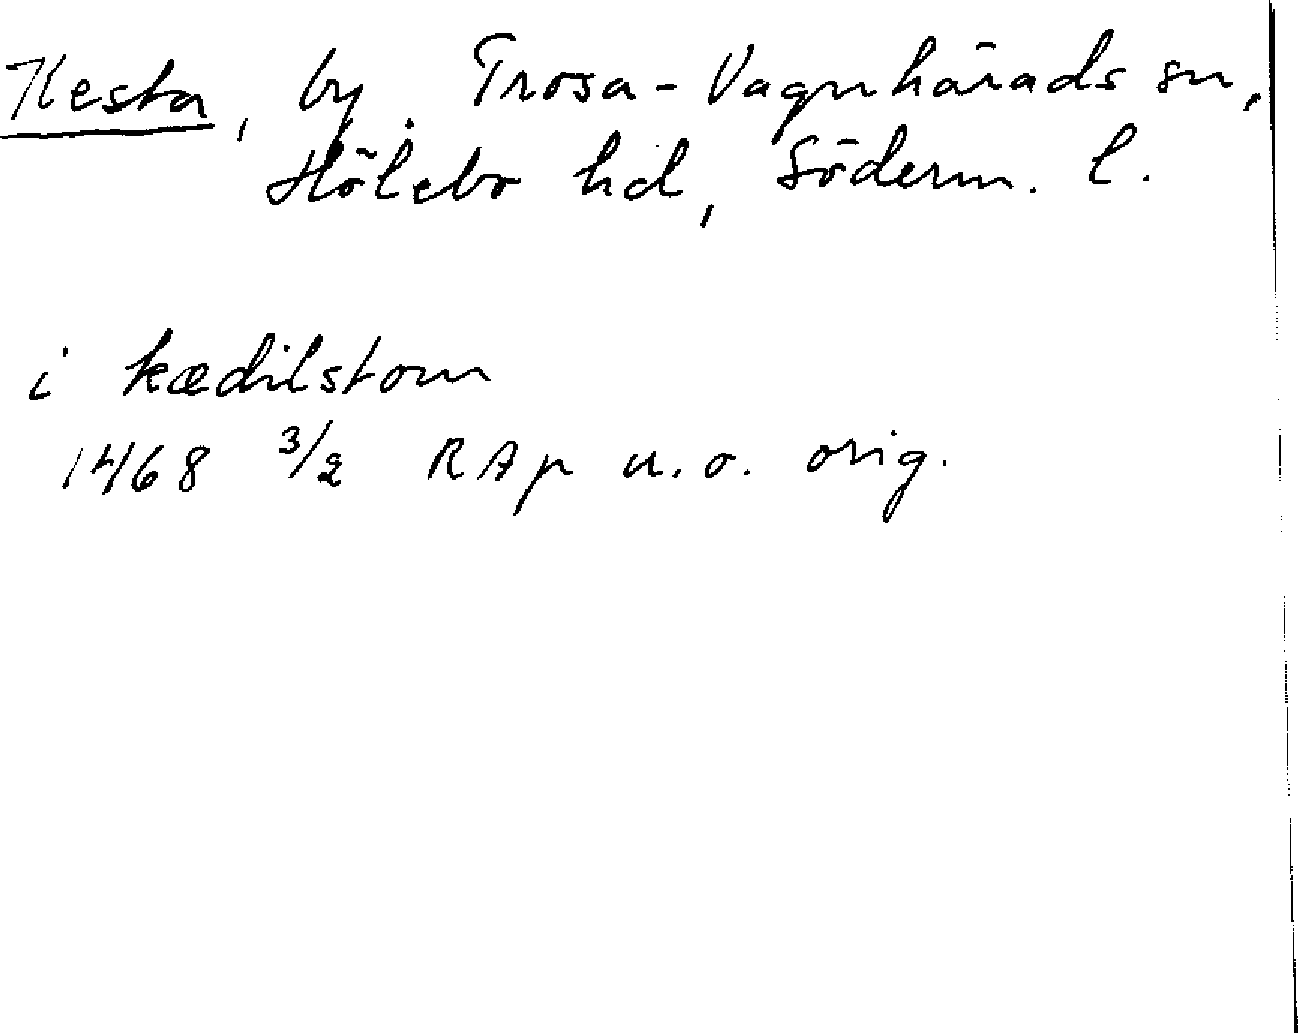 Kesta, by, Trosa-Vagnhärads sn,
Hölebo hd, Söderm. l.
i kædilstom
1468 3/2 RAp u.o. orig.